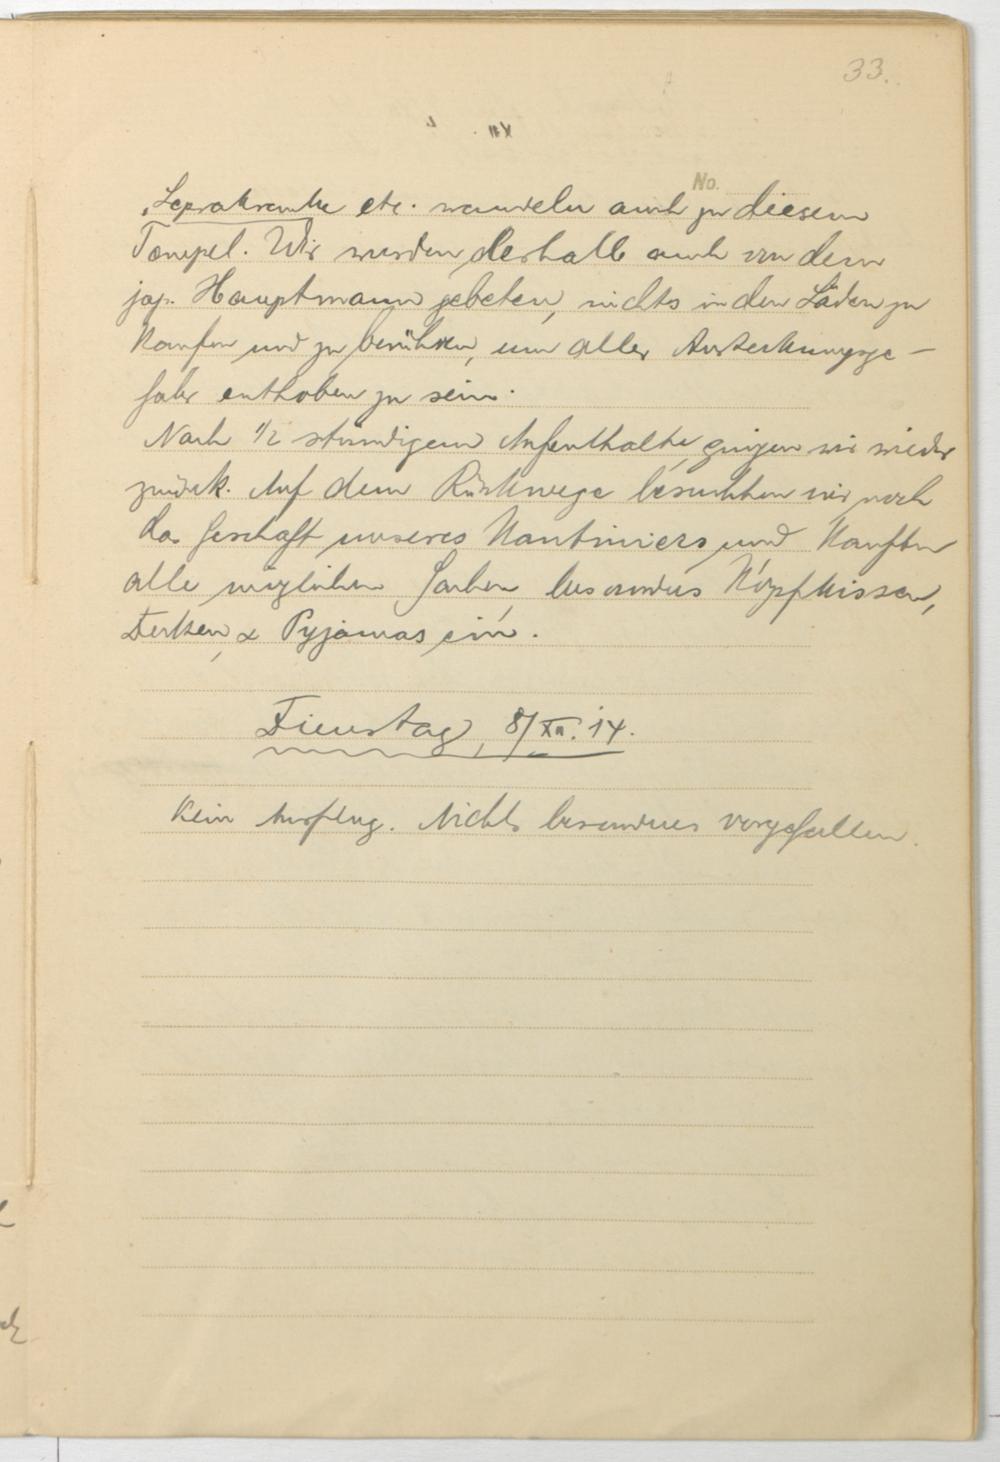 33.
No.
Leprakranke etc. wandeln auch zu diesem
Tempel. Wir wurden deshalb auch von dem
jap. Hauptmann gebeten, nichts in den Läden zu
kaufen und zu berühren, um aller Ansteckungsge-
fahr enthoben zu sein.
Nach 1/2 stündigem Aufenthalte gingen wir wieder
zurück. Auf dem Rückwege besuchten wir noch
das Geschäft unseres Kantiniers und kauften
alle möglichen Sachen besonders Kopfkissen,
Decken, & Pyjamas ein.
Dienstag, 8/XII. 14.
Kein Ausflug. Nichts besonderes vorgefallen.